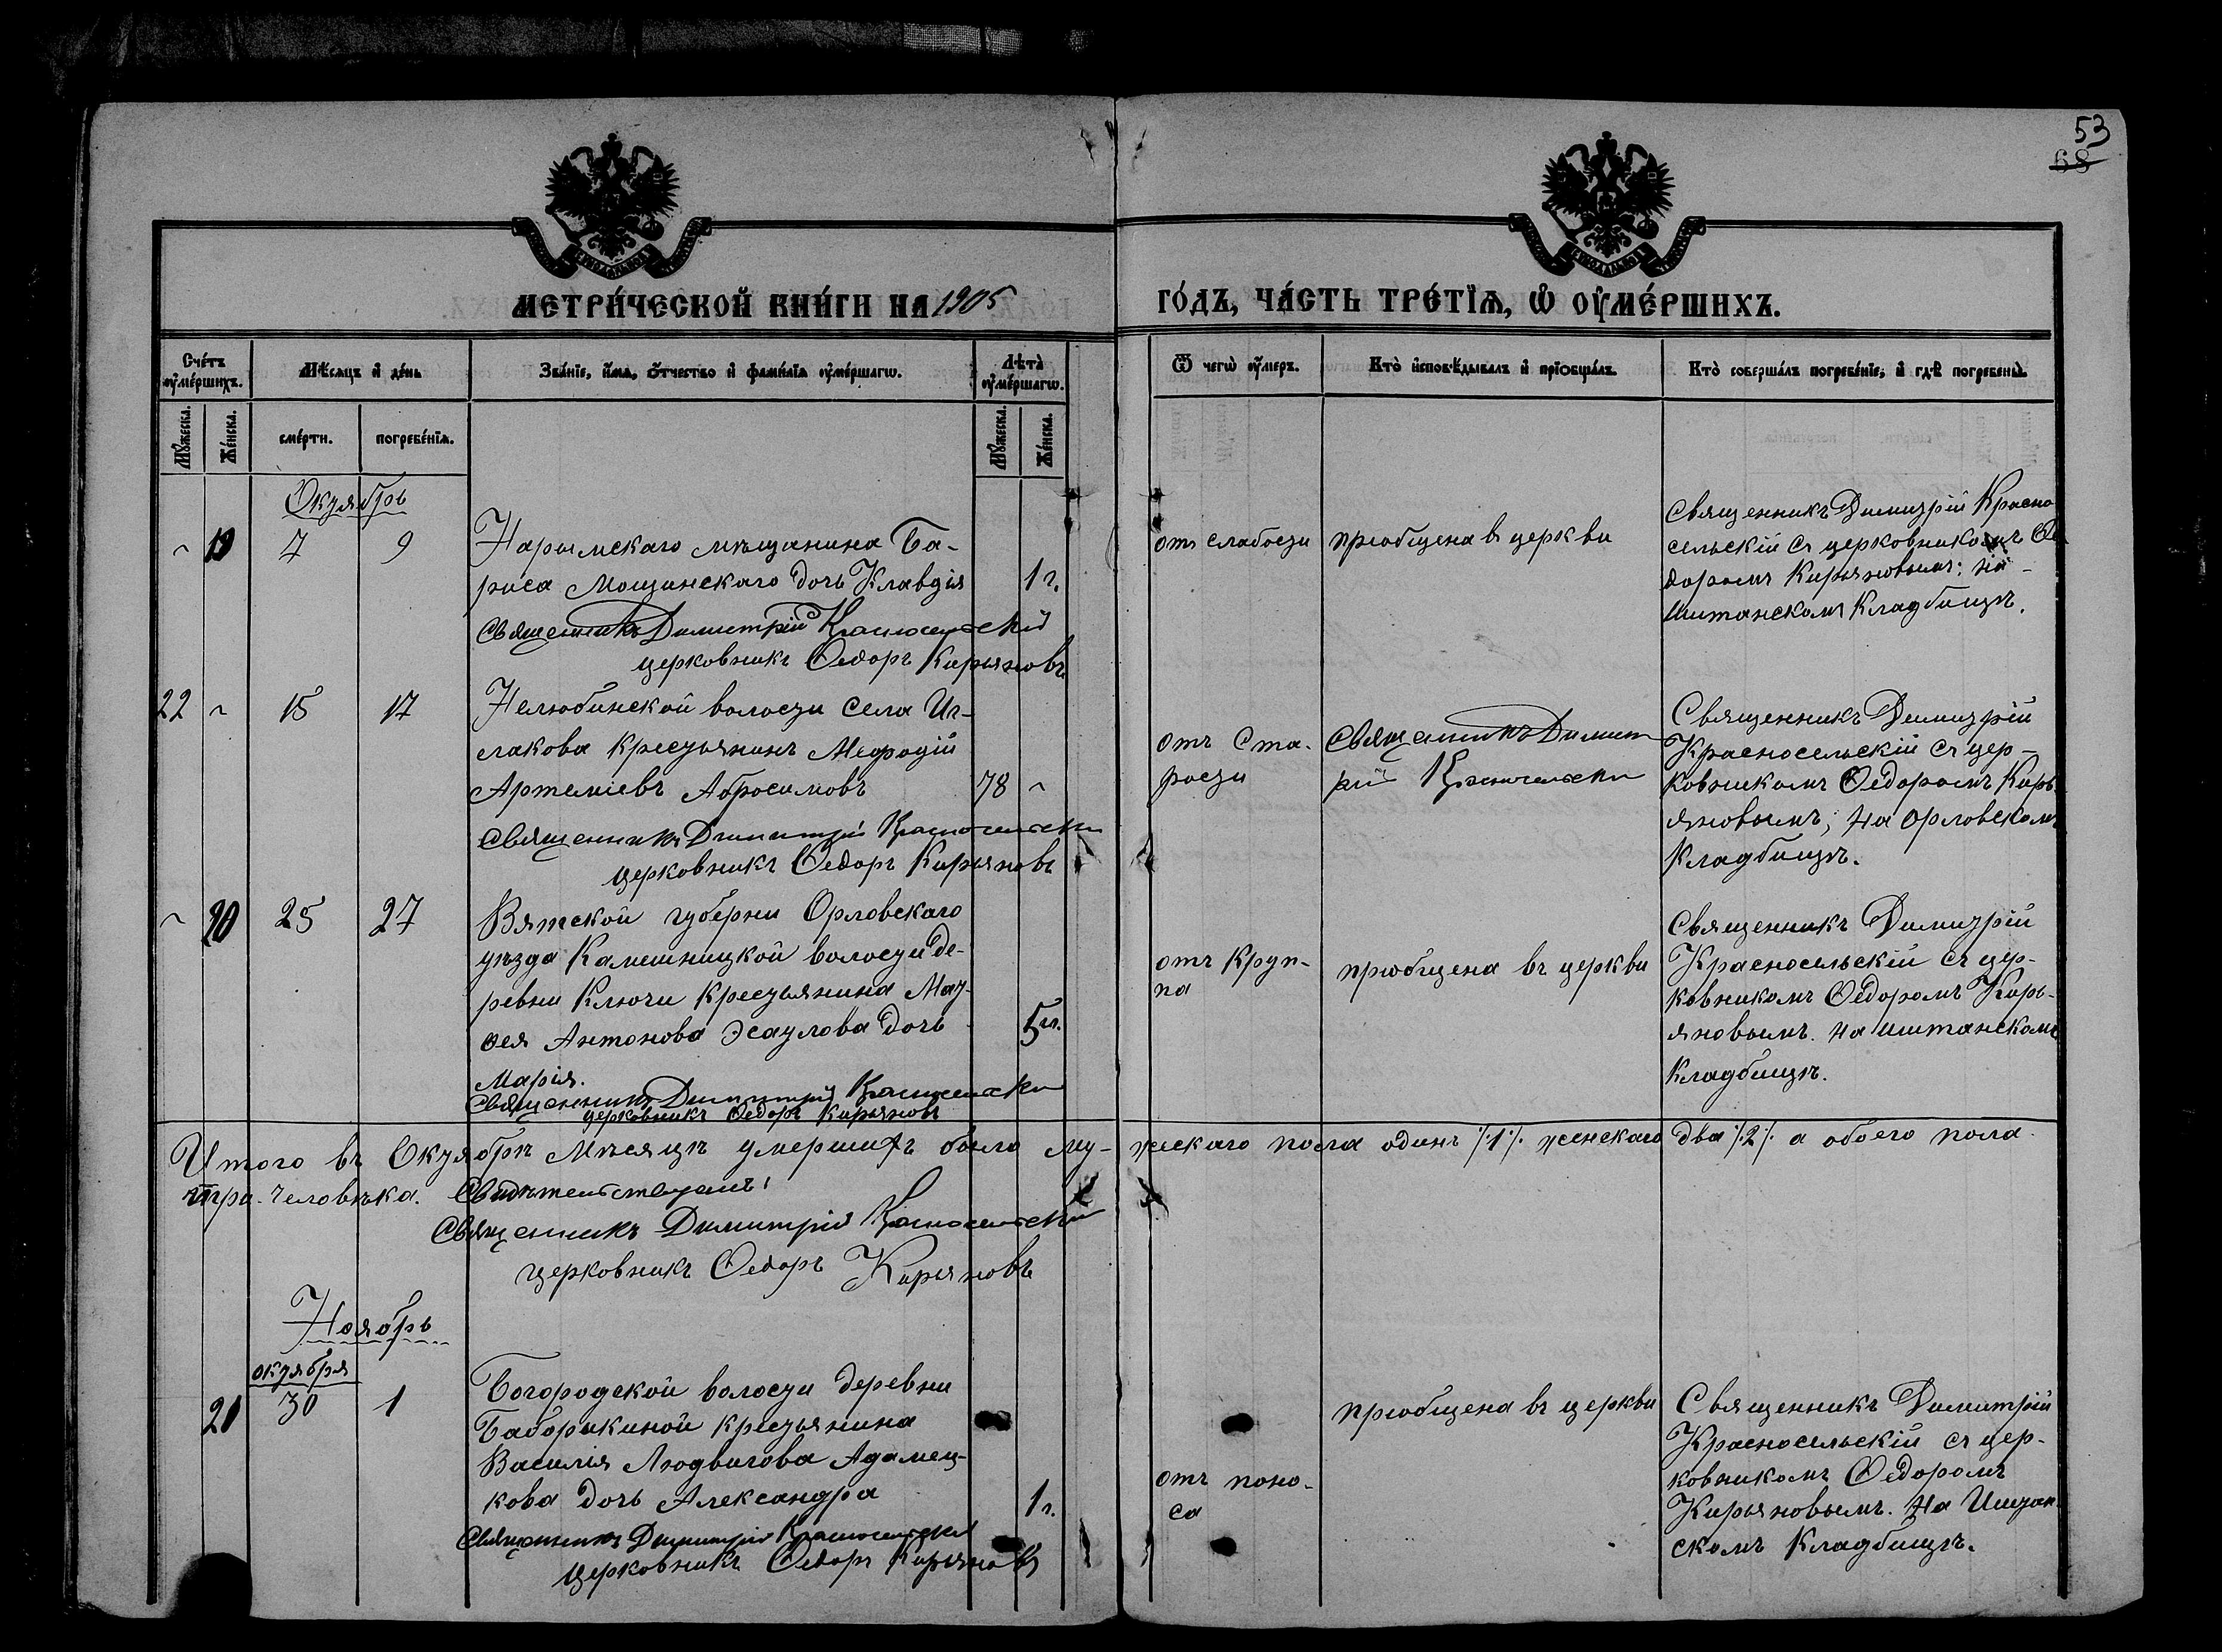 53
68
МЕТРИ́ЧЕСКОЙ КНИ́ГИ НА 1905
ГО́ДЪ, ЧА́СТЬ ТРЕ́ТІѦ, Ѡ҆ ОУ҆МЕ́РШИХЪ.
Сче́тъ оу҆ме́ршихъ.
Мѣ́сяцъ и҆ де́нь
Зва́ніе, и҆́мя, ѻ҆́тчество и҆ фами́лія оу҆ме́ршагѡ.
Лѣта̀ оу҆ме́ршагѡ.
Ѿ чегѡ̀ оу҆́меръ.
Кто̀ и҆сповѣ́дывалъ и҆ прїѻбща́лъ.
Кто̀ соверша́лъ погребе́ніе, и҆ гдѣ̀ погребены̀.
Мꙋ́жеска.
Же́нска.
сме́рти.
погребе́нія.
Мꙋ́жеска.
Же́нска.
Октябрь
~ 19 7 9
Нарымскаго мѣщанина Ба-
риса Мощинскаго дочь Клавдія 1 г.
Священникъ Димитрій Красносельскій
церковникъ Ѳедоръ Кирьяновъ
отъ слабости
пріобщена въ церкви
Священникъ Димитрій Красно
сельскій съ церковникомъ Ѳе
доромъ Кирьяновымъ; на
Иштанскомъ Кладбищѣ.
22 ~ 15 17
Нелюбинской волости села Иг-
лакова крестьянинъ Меѳодій
Артеміевъ Абросимовъ 78 ~
Священникъ Димитрій Красносельскій
церковникъ Ѳедоръ Кирьяновъ
отъ ста-
рости
Священникъ Димит
рій Красносельскій
Священникъ Димитрій
Красносельскій съ цер-
ковникомъ Ѳедоромъ Кирь
яновымъ; на Орловскомъ
Кладбищѣ.
~ 20 25 27
Вятской губерни Орловскаго
уѣзда Камешницкой волости де-
ревни Ключи крестьянина Мат-
ѳея Антонова Эсаулова дочь 5 л.
Марія.
Священникъ Димитрій Красносельскій
церковникъ Ѳедоръ Кирьяновъ
отъ Круп-
па
пріобщена въ церкви
Священникъ Димитрій
Красносельскій съ цер-
ковникомъ Ѳедоромъ Кирь-
яновымъ. на Иштанскомъ
Кладбищѣ.
Итого въ Октябрѣ мѣсяцѣ умершихъ было му- жескаго пола одинъ /:1:/. женскаго два /:2:/ а обоего пола
три человѣка. Свидѣтельствуемъ:
Священникъ Димитрій Красносельскій
церковникъ Ѳедоръ Кирьяновъ
Ноябрь
октября
21 30 1
Богородской волости деревни
Баборыкиной крестьянина
Василія Людвигова Адамец-
кова дочь Александра 1 г.
Священникъ Димитрій Красносельскій
церковникъ Ѳедоръ Кирьяновъ
отъ поно-
са
пріобщена въ церкви
Священникъ Димитрій
Красносельскій съ цер-
ковникомъ Ѳедоромъ
Кирьяновымъ. на Иштан
скомъ Кладбищѣ.